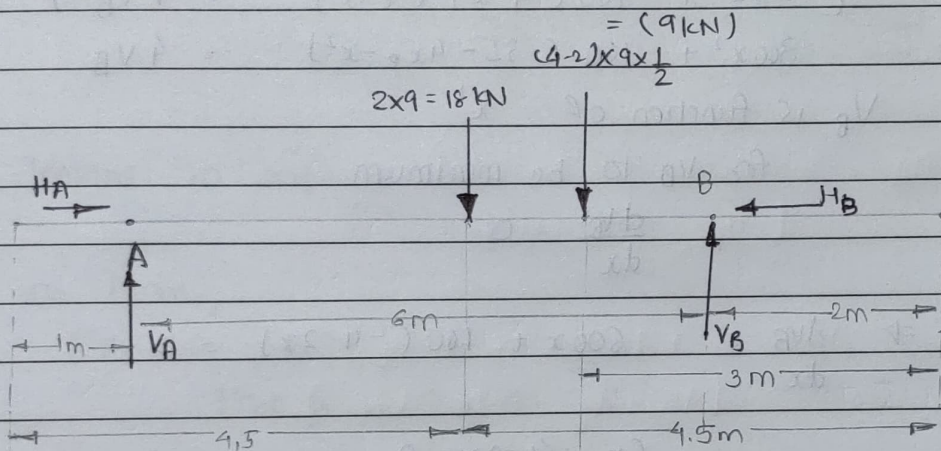 = (9kN)
(4-2)×9×1/2
2×9=18 KN
HA
B
HB
A
6m
2m
1m
VA
VB
3m
4,5
4.5m